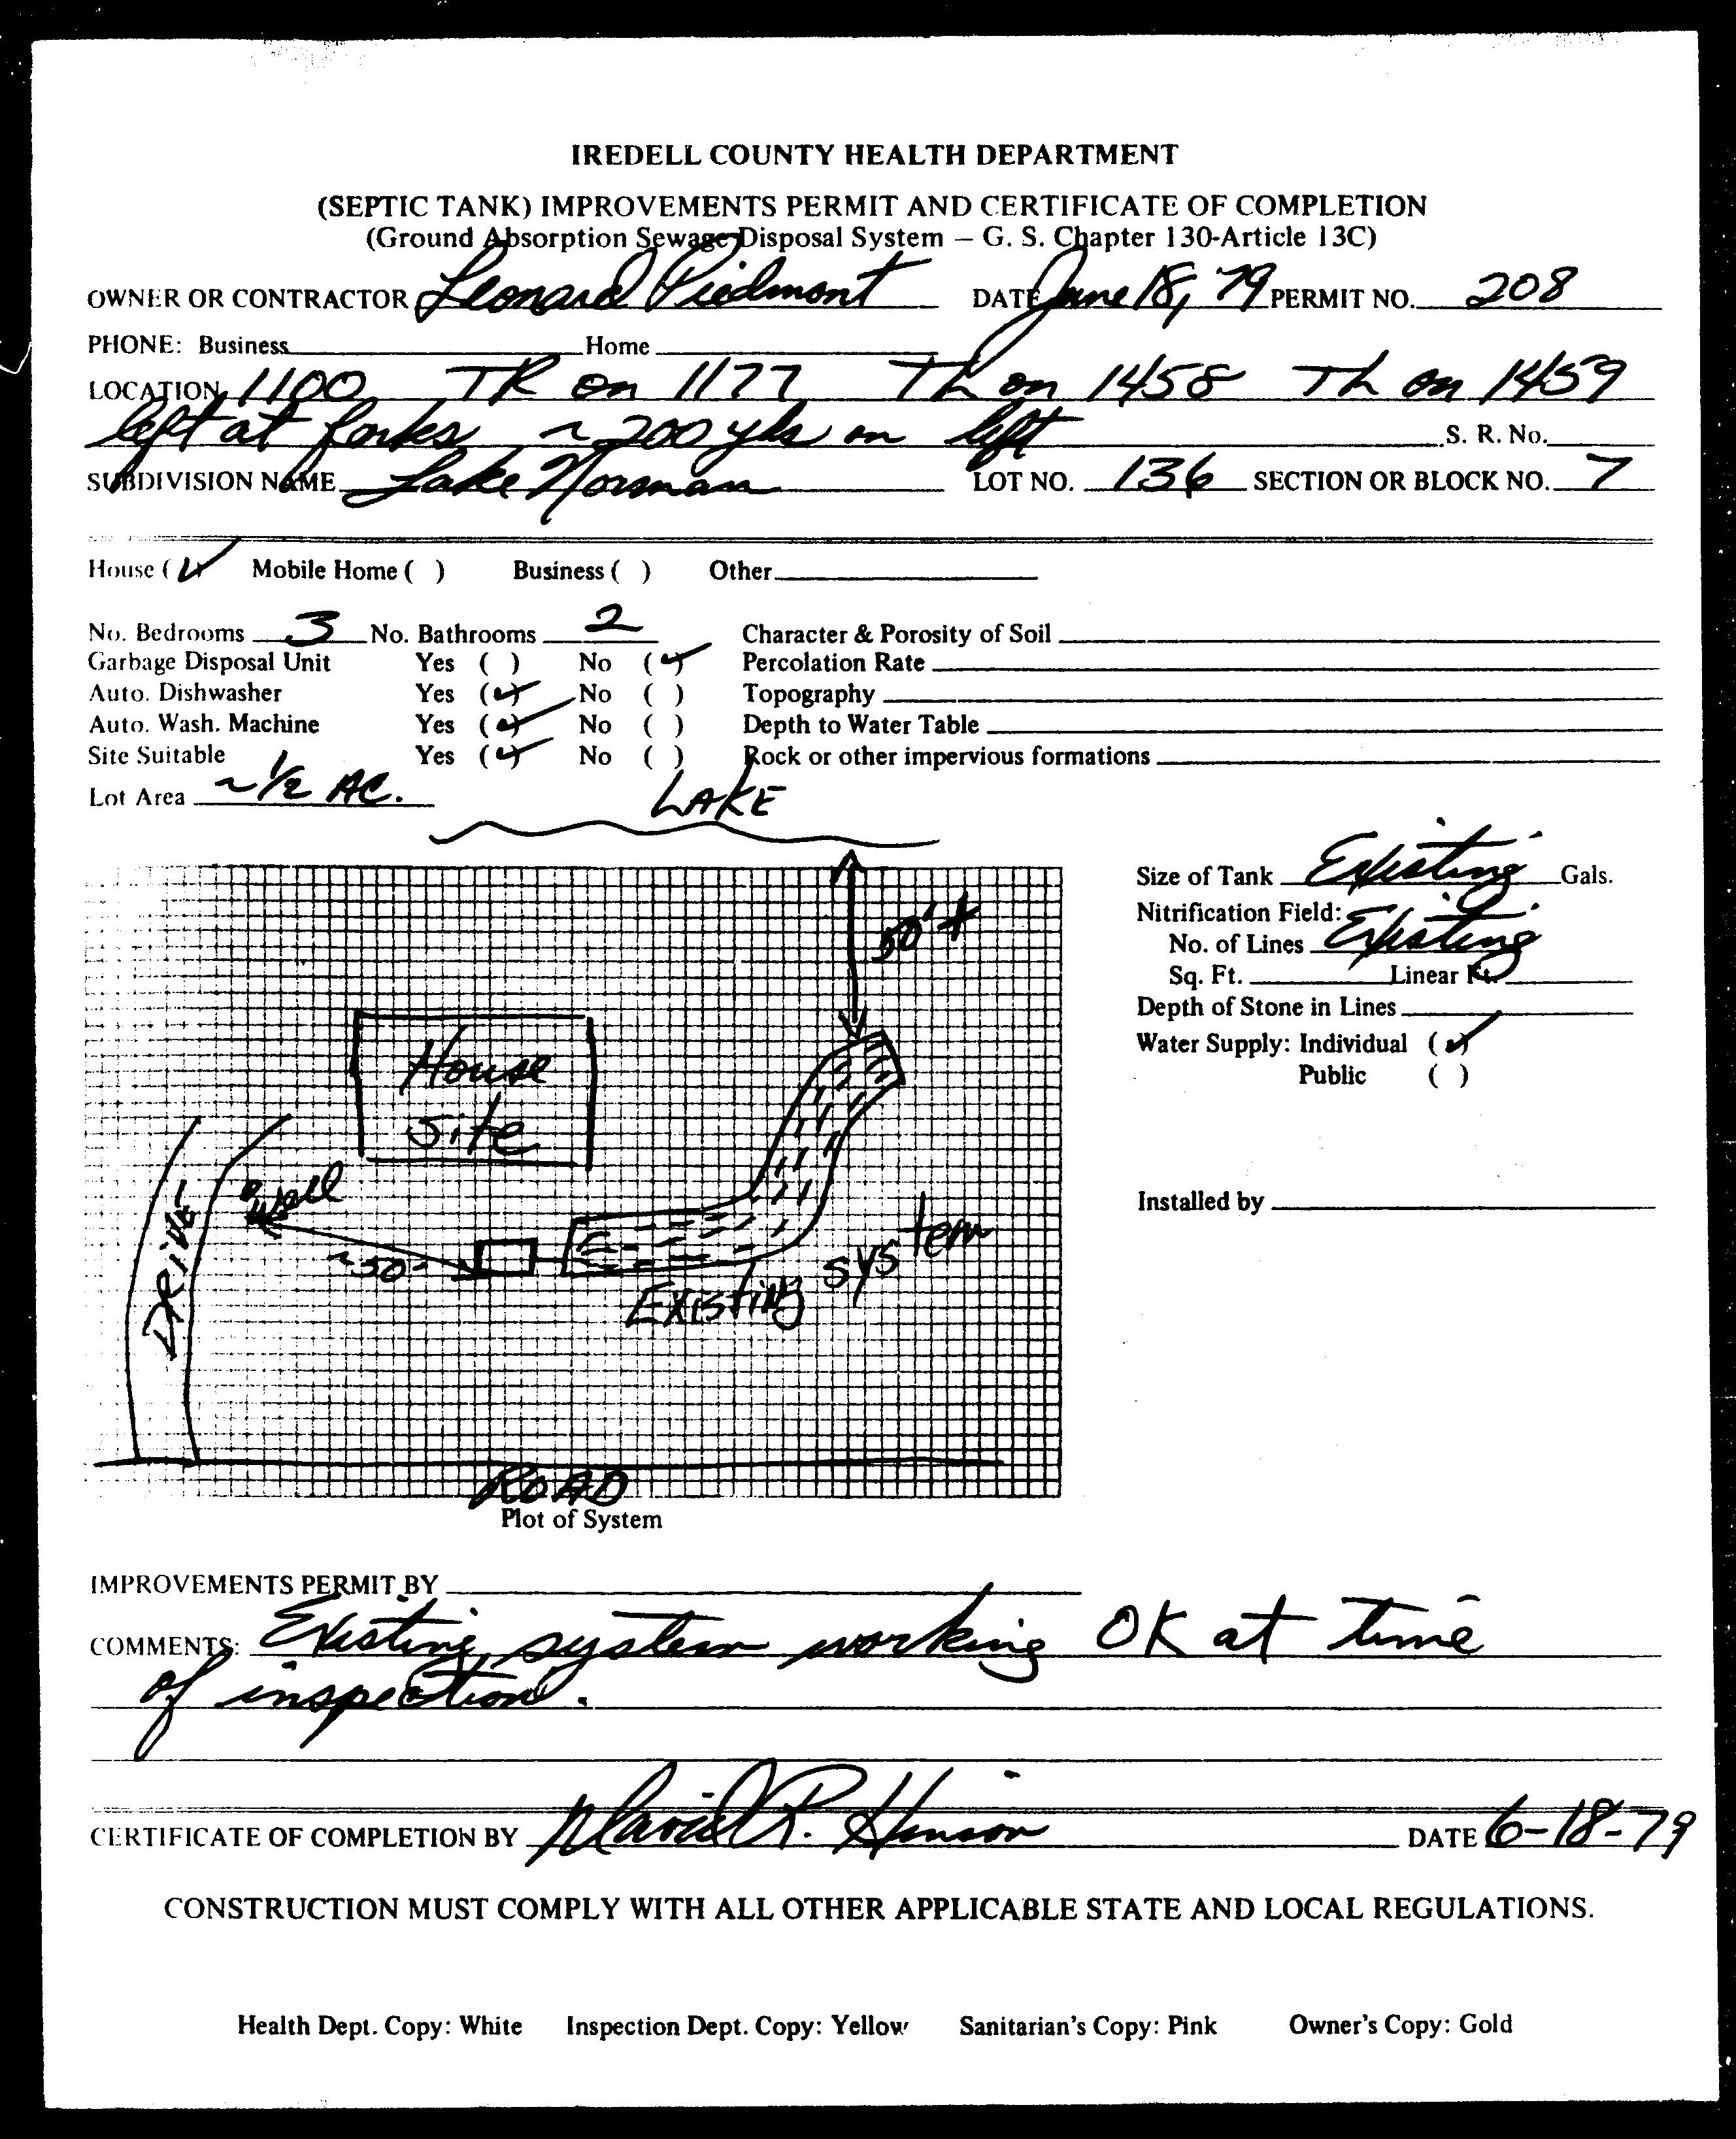 IREDELL COUNTY HEALTH DEPARTMENT
(SEPTIC TANK) IMPROVEMENTS PERMIT AND CERTIFICATE OF COMPLETION
(Ground Absorption Sewage Disposal System — G. S. Chapter 130-Article 13C)
OWNER OR CONTRACTOR Leonard Piedmont DATE June 18, 79 PERMIT NO. 208
PHONE: Business Home
LOCATION 1100 TR on 1177 TL on 1458 TL on 1459
left at forks ~ 200 yds on left S. R. No.
SUBDIVISION NAME Lake Norman LOT NO. 136 SECTION OR BLOCK NO. 7
House (✓) Mobile Home ( ) Business ( ) Other
No. Bedrooms 3 No. Bathrooms 2 Character & Porosity of Soil
Garbage Disposal Unit Yes ( ) No (✓) Percolation Rate
Auto. Dishwasher Yes (✓) No ( ) Topography
Auto. Wash. Machine Yes (✓) No ( ) Depth to Water Table
Site Suitable Yes (✓) No ( ) Rock or other impervious formations
Lot Area ~ 1/2 AC.
LAKE
Size of Tank Existing Gals.
Nitrification Field:
No. of Lines Existing
Sq. Ft. Linear Ft.
Depth of Stone in Lines
Water Supply: Individual (✓)
Public ( )
Installed by
50' +
House
Site
Well
DRIVE
~50'
Existing system
ROAD
Plot of System
IMPROVEMENTS PERMIT BY
COMMENTS: Existing system working OK at time
of inspection.
CERTIFICATE OF COMPLETION BY David R. Hinson DATE 6-18-79
CONSTRUCTION MUST COMPLY WITH ALL OTHER APPLICABLE STATE AND LOCAL REGULATIONS.
Health Dept. Copy: White Inspection Dept. Copy: Yellow Sanitarian's Copy: Pink Owner's Copy: Gold